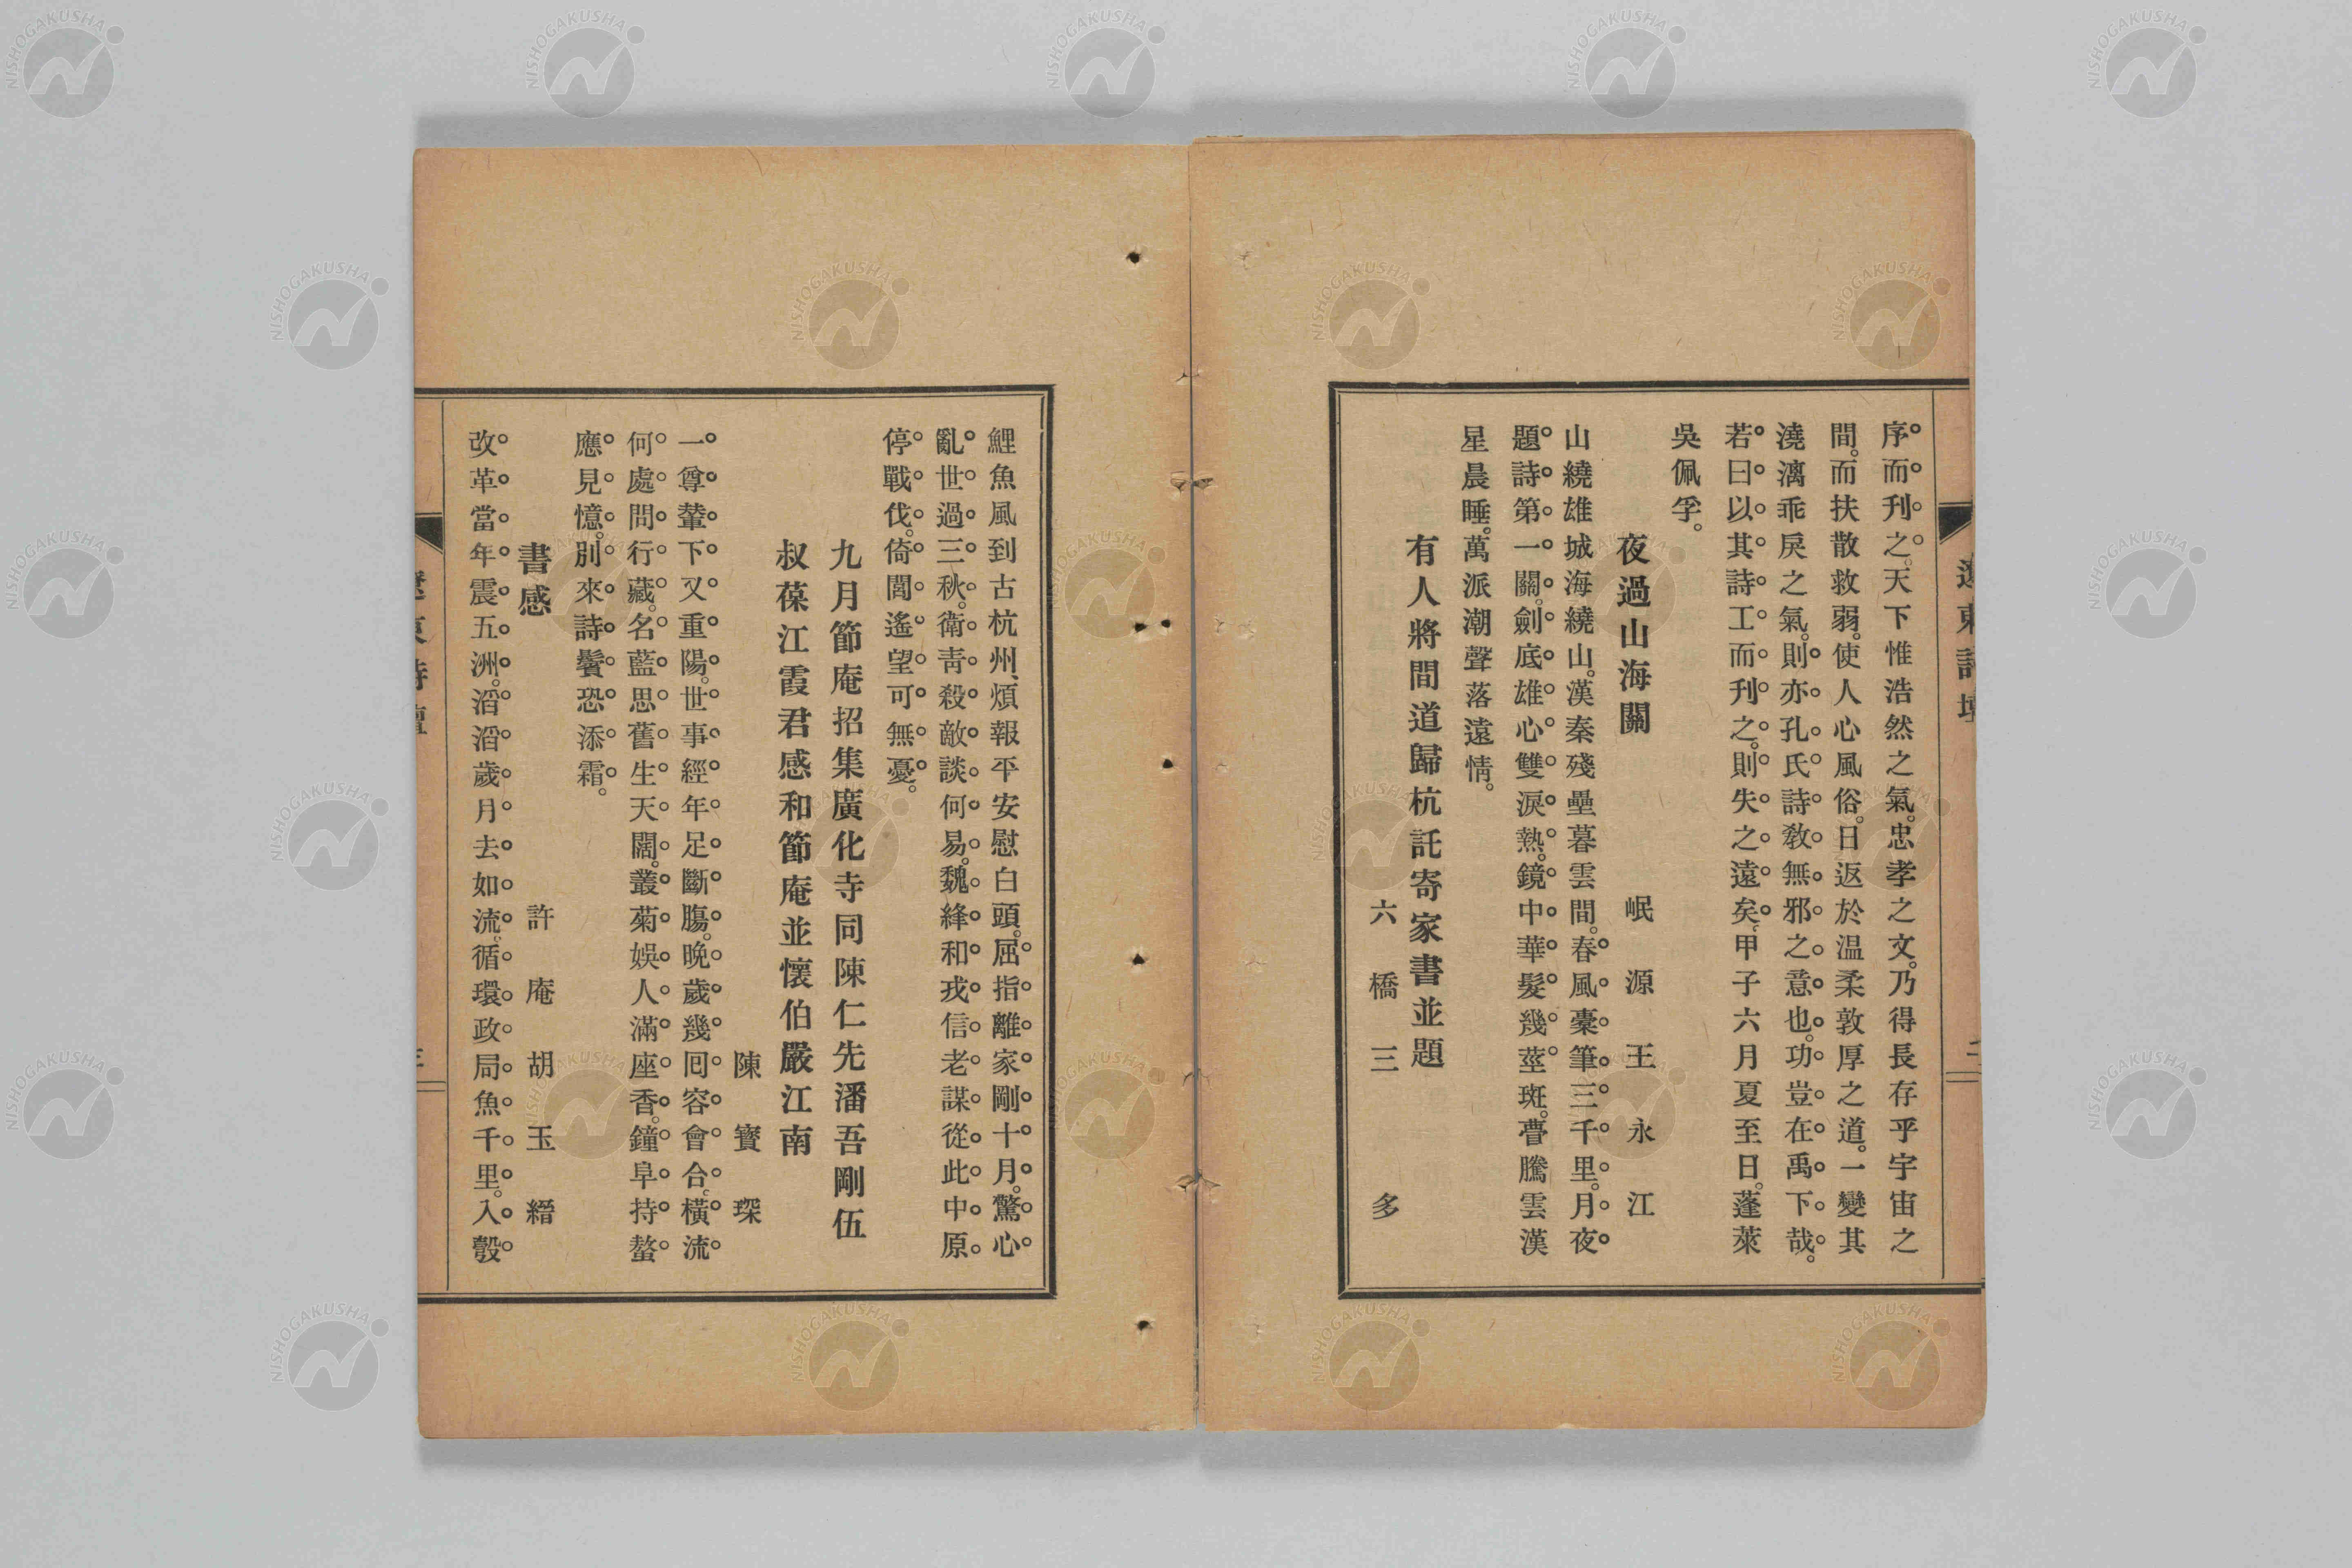 序而刊之。天下惟浩然之氣。忠孝之文。乃得長存乎宇宙之
間。而扶散救弱。使人心風俗。日返於温柔敦厚之道。一變其
澆漓乖戾之氣。則亦孔氏詩教無邪之意也。功豈在禹下哉。
若曰以其詩工而刊之。則失之遠矣。甲子六月夏至日。蓬萊
吳佩孚。
夜過山海關
岷源王永江
山繞雄城海繞山。漢秦殘壘暮雲間。春風橐筆三千里。月夜
題詩第一關。劍底雄心雙淚熱。鏡中華髮幾莖斑。瞢騰雲漢
星晨睡。萬派潮聲落遠情。
有人將間道歸杭託寄家書並題
六橋三多
鯉魚風到古杭州、煩報平安慰白頭。屈指離家剛十月。驚心
亂世過三秋。衛靑殺敵談何易。魏絳和戎信老謀。從此中原
停戰伐。倚閭遙望可無憂。
九月節庵招集廣化寺同陳仁先潘吾剛伍
叔葆江霞君感和節庵並懷伯嚴江南
陳寶琛
一尊輦下又重陽。世事經年足斷膓。晚歲幾囘容會合。橫流
何處問行藏。名藍思舊生天闊。叢菊娛人滿座香。鐘阜持螯
應見憶。別來詩鬢恐添霜。
書感
許庵胡玉縉
改革當年震五洲。滔滔歲月去如流。循環政局魚千里。入彀
遼東詩壇